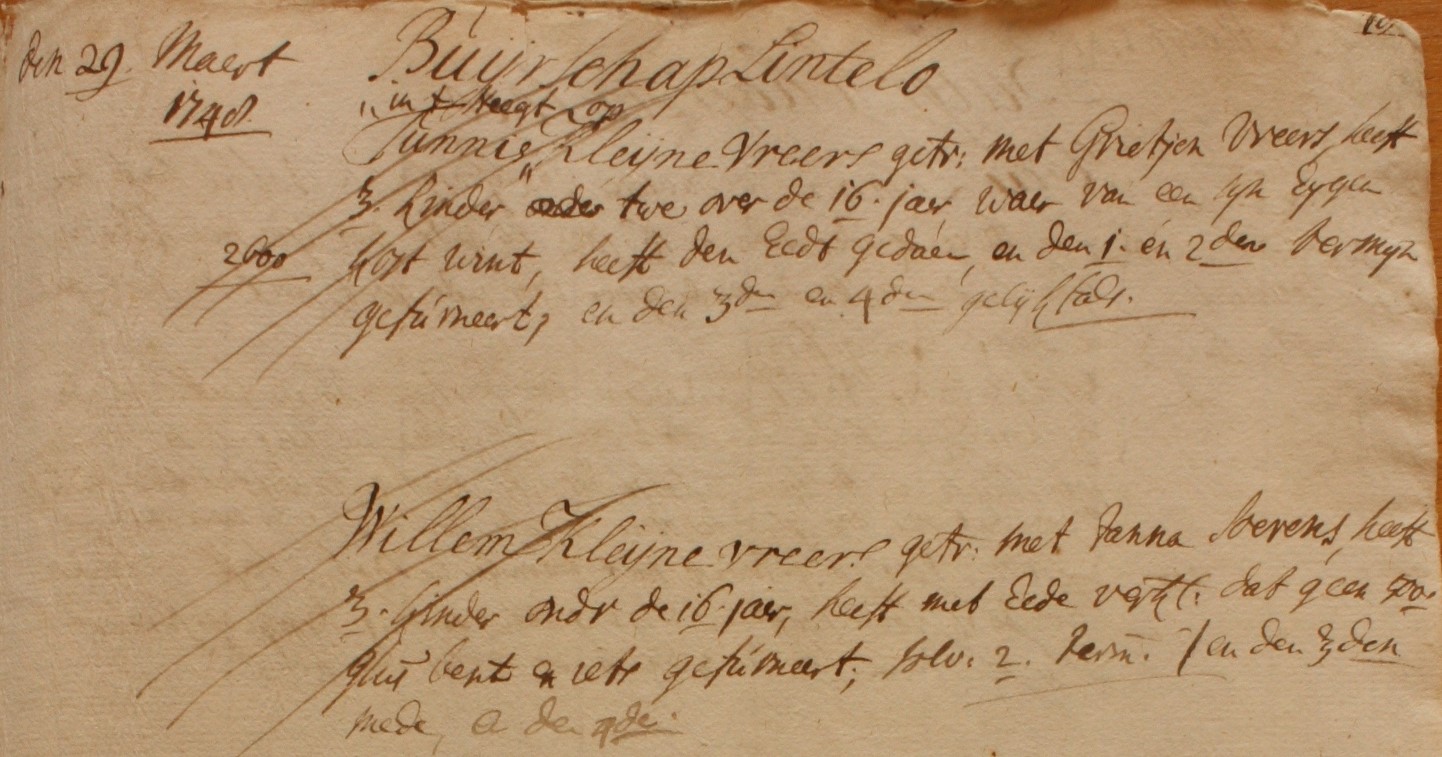 den 29. Maert
1748.
Buijrschap Lintelo
"int Heegt op
Tunnis" Kleijne Vreers getr: met Grietjen Vreers, heeft
3. kinder twe over de 16. jaer waer van een sijn Eijgen
2000
kost wint, heeft den Eedt gedaen, en den 1. en 2den termijn
gefúrneert, en den 3den en 4den gelijkfals.
Willem Kleijne vreers getr: met Janna Stevens, heeft
3. kinder ondr de 16. jaer, heeft met Eede verkl: dat geen 500.
guī bent en iets gefúrneert; solv: 2. term̄. / en den 3den
mede, en den 4de.